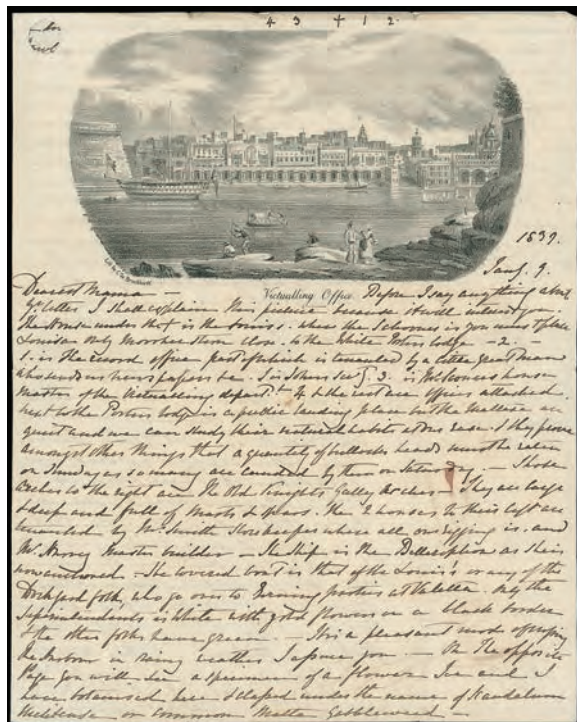 4 3 + 1 2.
1839.
Jany. 9.
Victualling Office
Dearest Mama — Before I say anything about
yr. letter I shall explain this picture because it will interest you
The House under the + is the Louis's. where the Schooner is you must place
Louisa only moor her stern close to the white Porters lodge — 2. —
1. is the Record office part of which is tenanted by a little great man
who sends us newspapers &c. 3. is house
Master of the Victualling depart. 4 & the rest are offices attached.
next to the Porters lodge is a public landing place but the Maltese are
quiet and we can study their natural habits at our ease. & they prove
amongst other things that a quantity of bullocks heads must be eaten
on Sunday as so many are counted by them on Saturday. — Those
arches to the right are the Old Knights Galley Arches — They are large
& deep and full of masts & spars. the 2 houses to their left are
tenanted by Mr. Smith Storekeeper where all our rigging is. and
Mr. Master builder — The Ship is the Bellerophon as she is
now anchored — The covered boat is that of the Louis's or any of the
Dockyard folk, who go over to Evening parties at Valetta. only the
Superintendents is White with gold flowers on a black border
& the other folks have green. — It is a pleasant mode of
the Harbour in rainy weather I assure you. — On the opposite
Page you will see a specimen of a flower and I
have botanised here & classed under the name of Scandalum
Melitense or Common Malta Gabbleweed —